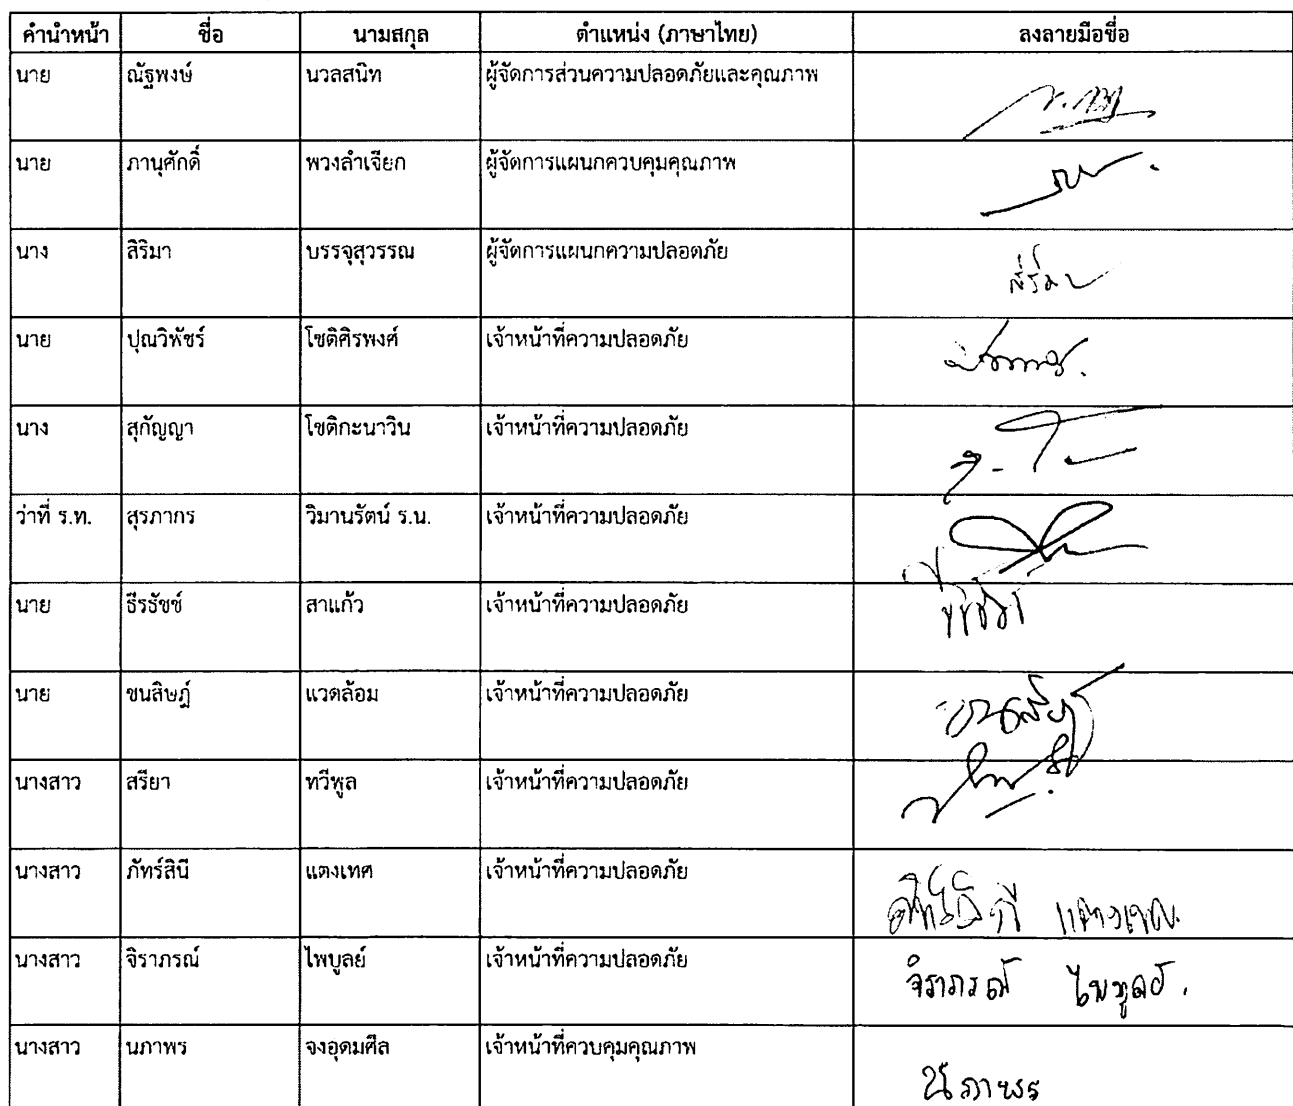 คำนำหน้า ชื่อ นามสกุล ตำแหน่ง (ภาษาไทย) ลงลายมือชื่อ
นาย ณัฐพงษ์ นวลสนิท ผู้จัดการส่วนความปลอดภัยและคุณภาพ
นาย ภานุศักดิ์ พวงลำเจียก ผู้จัดการแผนกควบคุมคุณภาพ
นาง สิริมา บรรจุสุวรรณ ผู้จัดการแผนกความปลอดภัย
นาย ปุณวิพัชร์ โชติศิรพงศ์ เจ้าหน้าที่ความปลอดภัย
นาง สุกัญญา โชติกะนาวิน เจ้าหน้าที่ความปลอดภัย
ว่าที่ ร.ท. สุรภากร วิมานรัตน์ ร.น. เจ้าหน้าที่ความปลอดภัย
นาย ธีรธัชช์ สาแก้ว เจ้าหน้าที่ความปลอดภัย
นาย ชนสิษฎ์ แวดล้อม เจ้าหน้าที่ความปลอดภัย
นางสาว สรียา ทวีพูล เจ้าหน้าที่ความปลอดภัย
นางสาว ภัทร์สินี แตงเทศ เจ้าหน้าที่ความปลอดภัย
นางสาว จิราภรณ์ ไพบูลย์ เจ้าหน้าที่ความปลอดภัย จิราภรณ์ ไพบูลย์.
นางสาว นภาพร จงอุดมศีล เจ้าหน้าที่ควบคุมคุณภาพ นภาพร